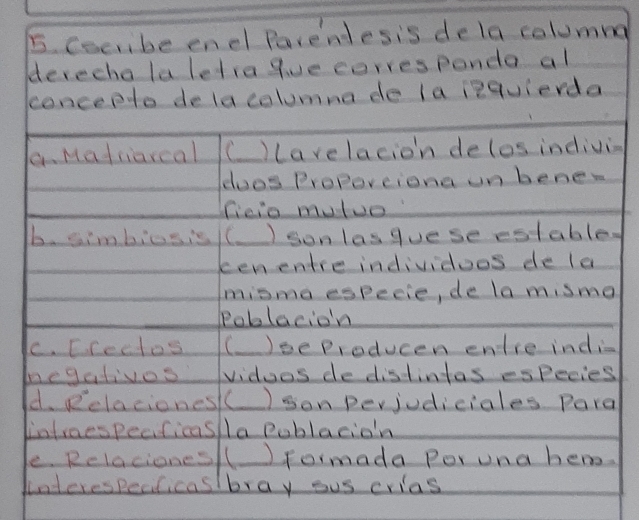 5. Escribe en el Paréntesis de la columna
derecha la letra que corresponda al
concepto de la columna de la izquierda
a. Matriarcal ( ) La relación de los indivi-
duos Proporciona un bene-
ficio mutuo
b. simbiosis ( ) son las que se estable-
cen entre individuos de la
misma especie, de la misma
Población
c. Efectos ( ) se Producen entre indi-
negativos viduos de distintas especies
d. Relaciones ( ) son Perjudiciales Para
intraespecificas la Población
e. Relaciones ( ) Formada Por una hem-
interespecificas bra y sus crías